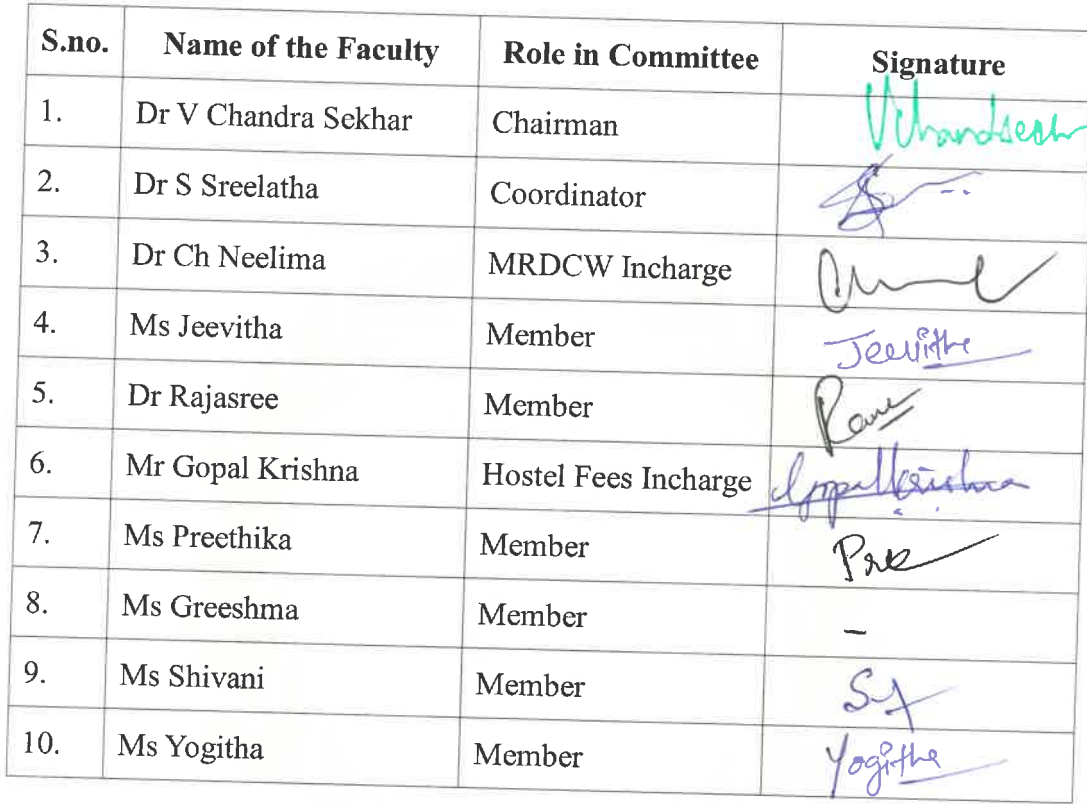 S.no. Name of the Faculty Role in Committee Signature
1. Dr V Chandra Sekhar Chairman
2. Dr S Sreelatha Coordinator
3. Dr Ch Neelima MRDCW Incharge
4. Ms Jeevitha Member Jeevitha
5. Dr Rajasree Member
6. Mr Gopal Krishna Hostel Fees Incharge Gopal Krishna
7. Ms Preethika Member
8. Ms Greeshma Member -
9. Ms Shivani Member
10. Ms Yogitha Member Yogitha